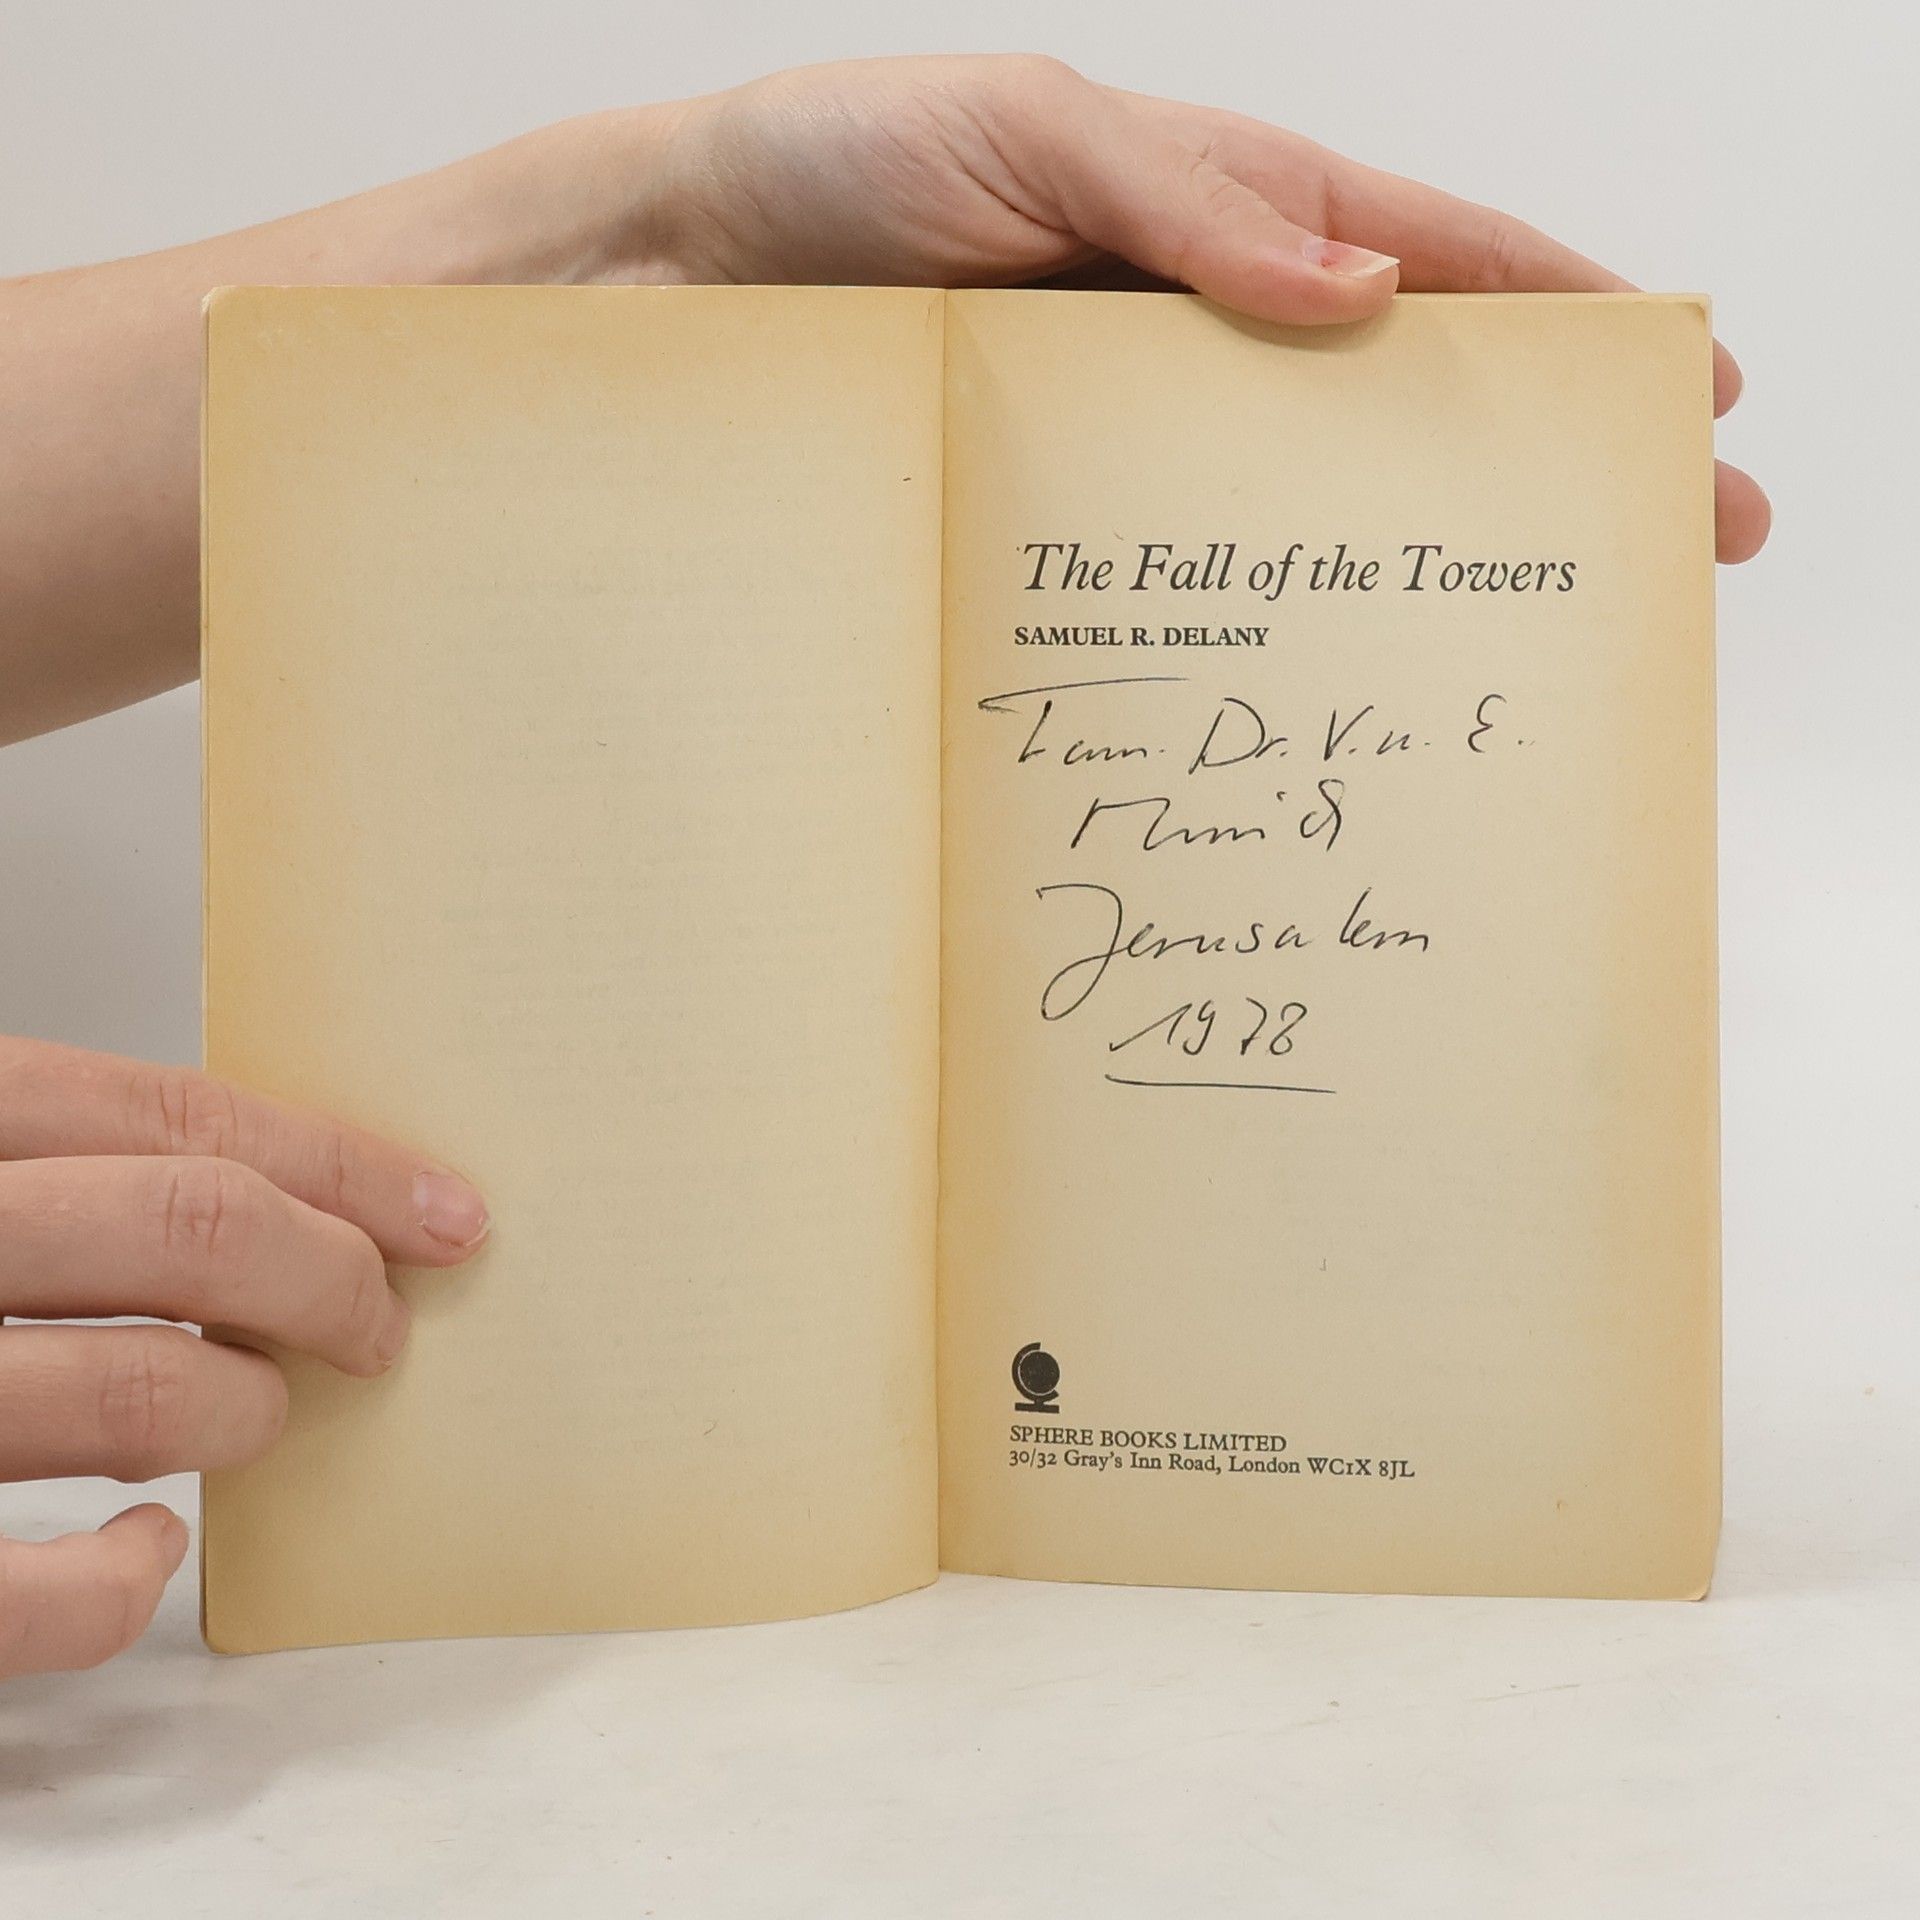 The Fall of the Towers
SAMUEL R. DELANY
Fam. Dr. V. u. E.
Jerusalem
1978
SPHERE BOOKS LIMITED
30/32 Gray's Inn Road, London WC1X 8JL